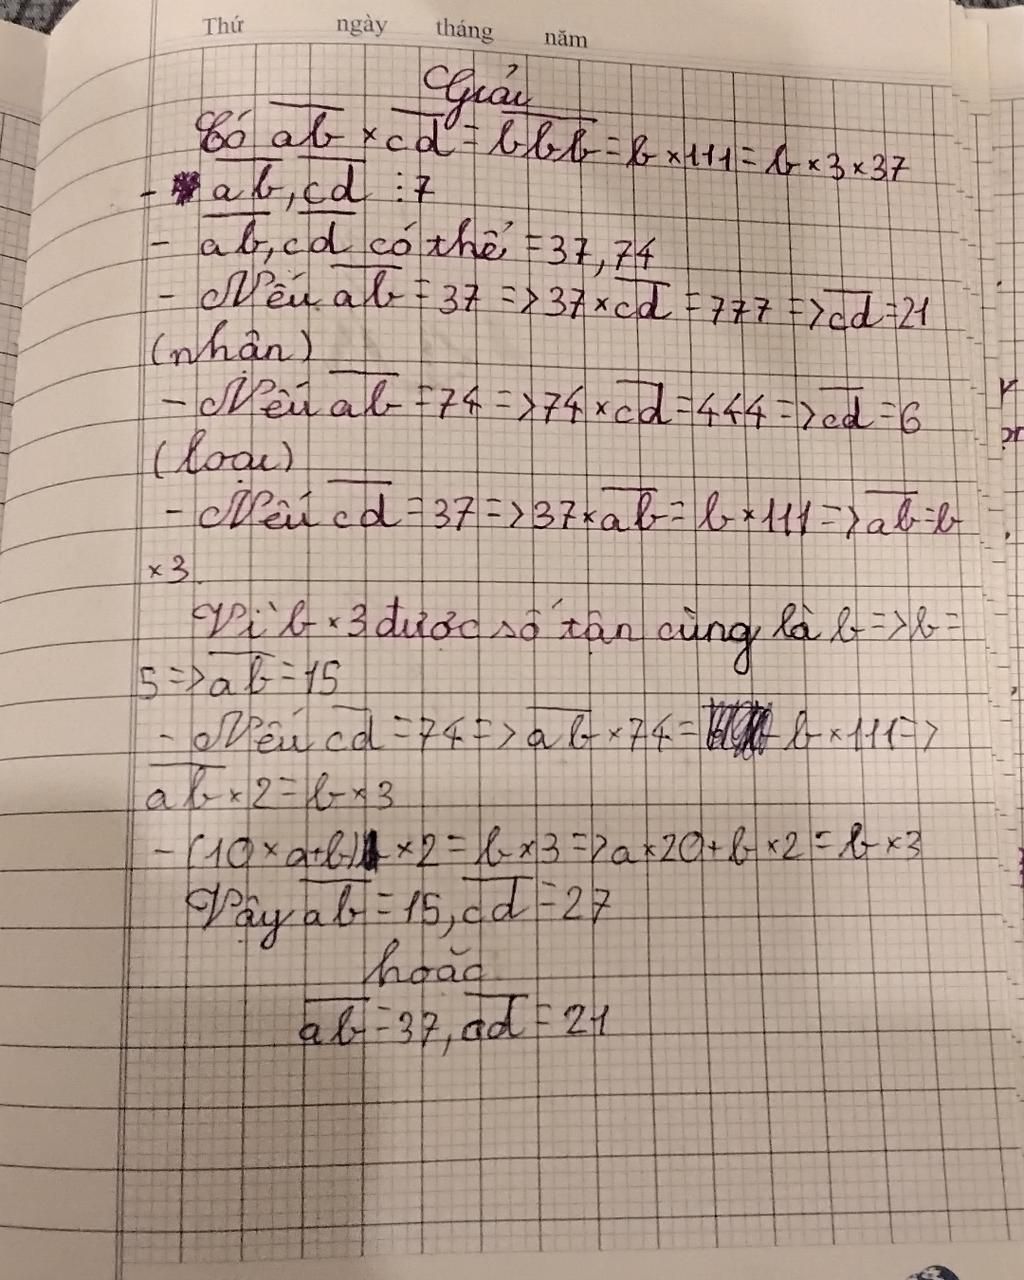 Thứ ngày tháng năm
Giải
Có ab × cd = bbb = b × 111 = b × 3 × 37
- ab, cd ⋮ 7
- ab, cd có thể = 37, 74
- Nếu ab = 37 => 37 × cd = 777 => cd = 21
(nhận)
- Nếu ab = 74 => 74 × cd = 444 => cd = 6
(loại)
- Nếu cd = 37 => 37 × ab = b × 111 => ab = b
× 3.
Vì b × 3 được số tận cùng là b => b =
5 => ab = 15
- Nếu cd = 74 => ab × 74 = b × 111 =>
ab × 2 = b × 3
- (10 × a + b) × 2 = b × 3 => a × 20 + b × 2 = b × 3
Vậy ab = 15, cd = 27
hoặc
ab = 37, cd = 21